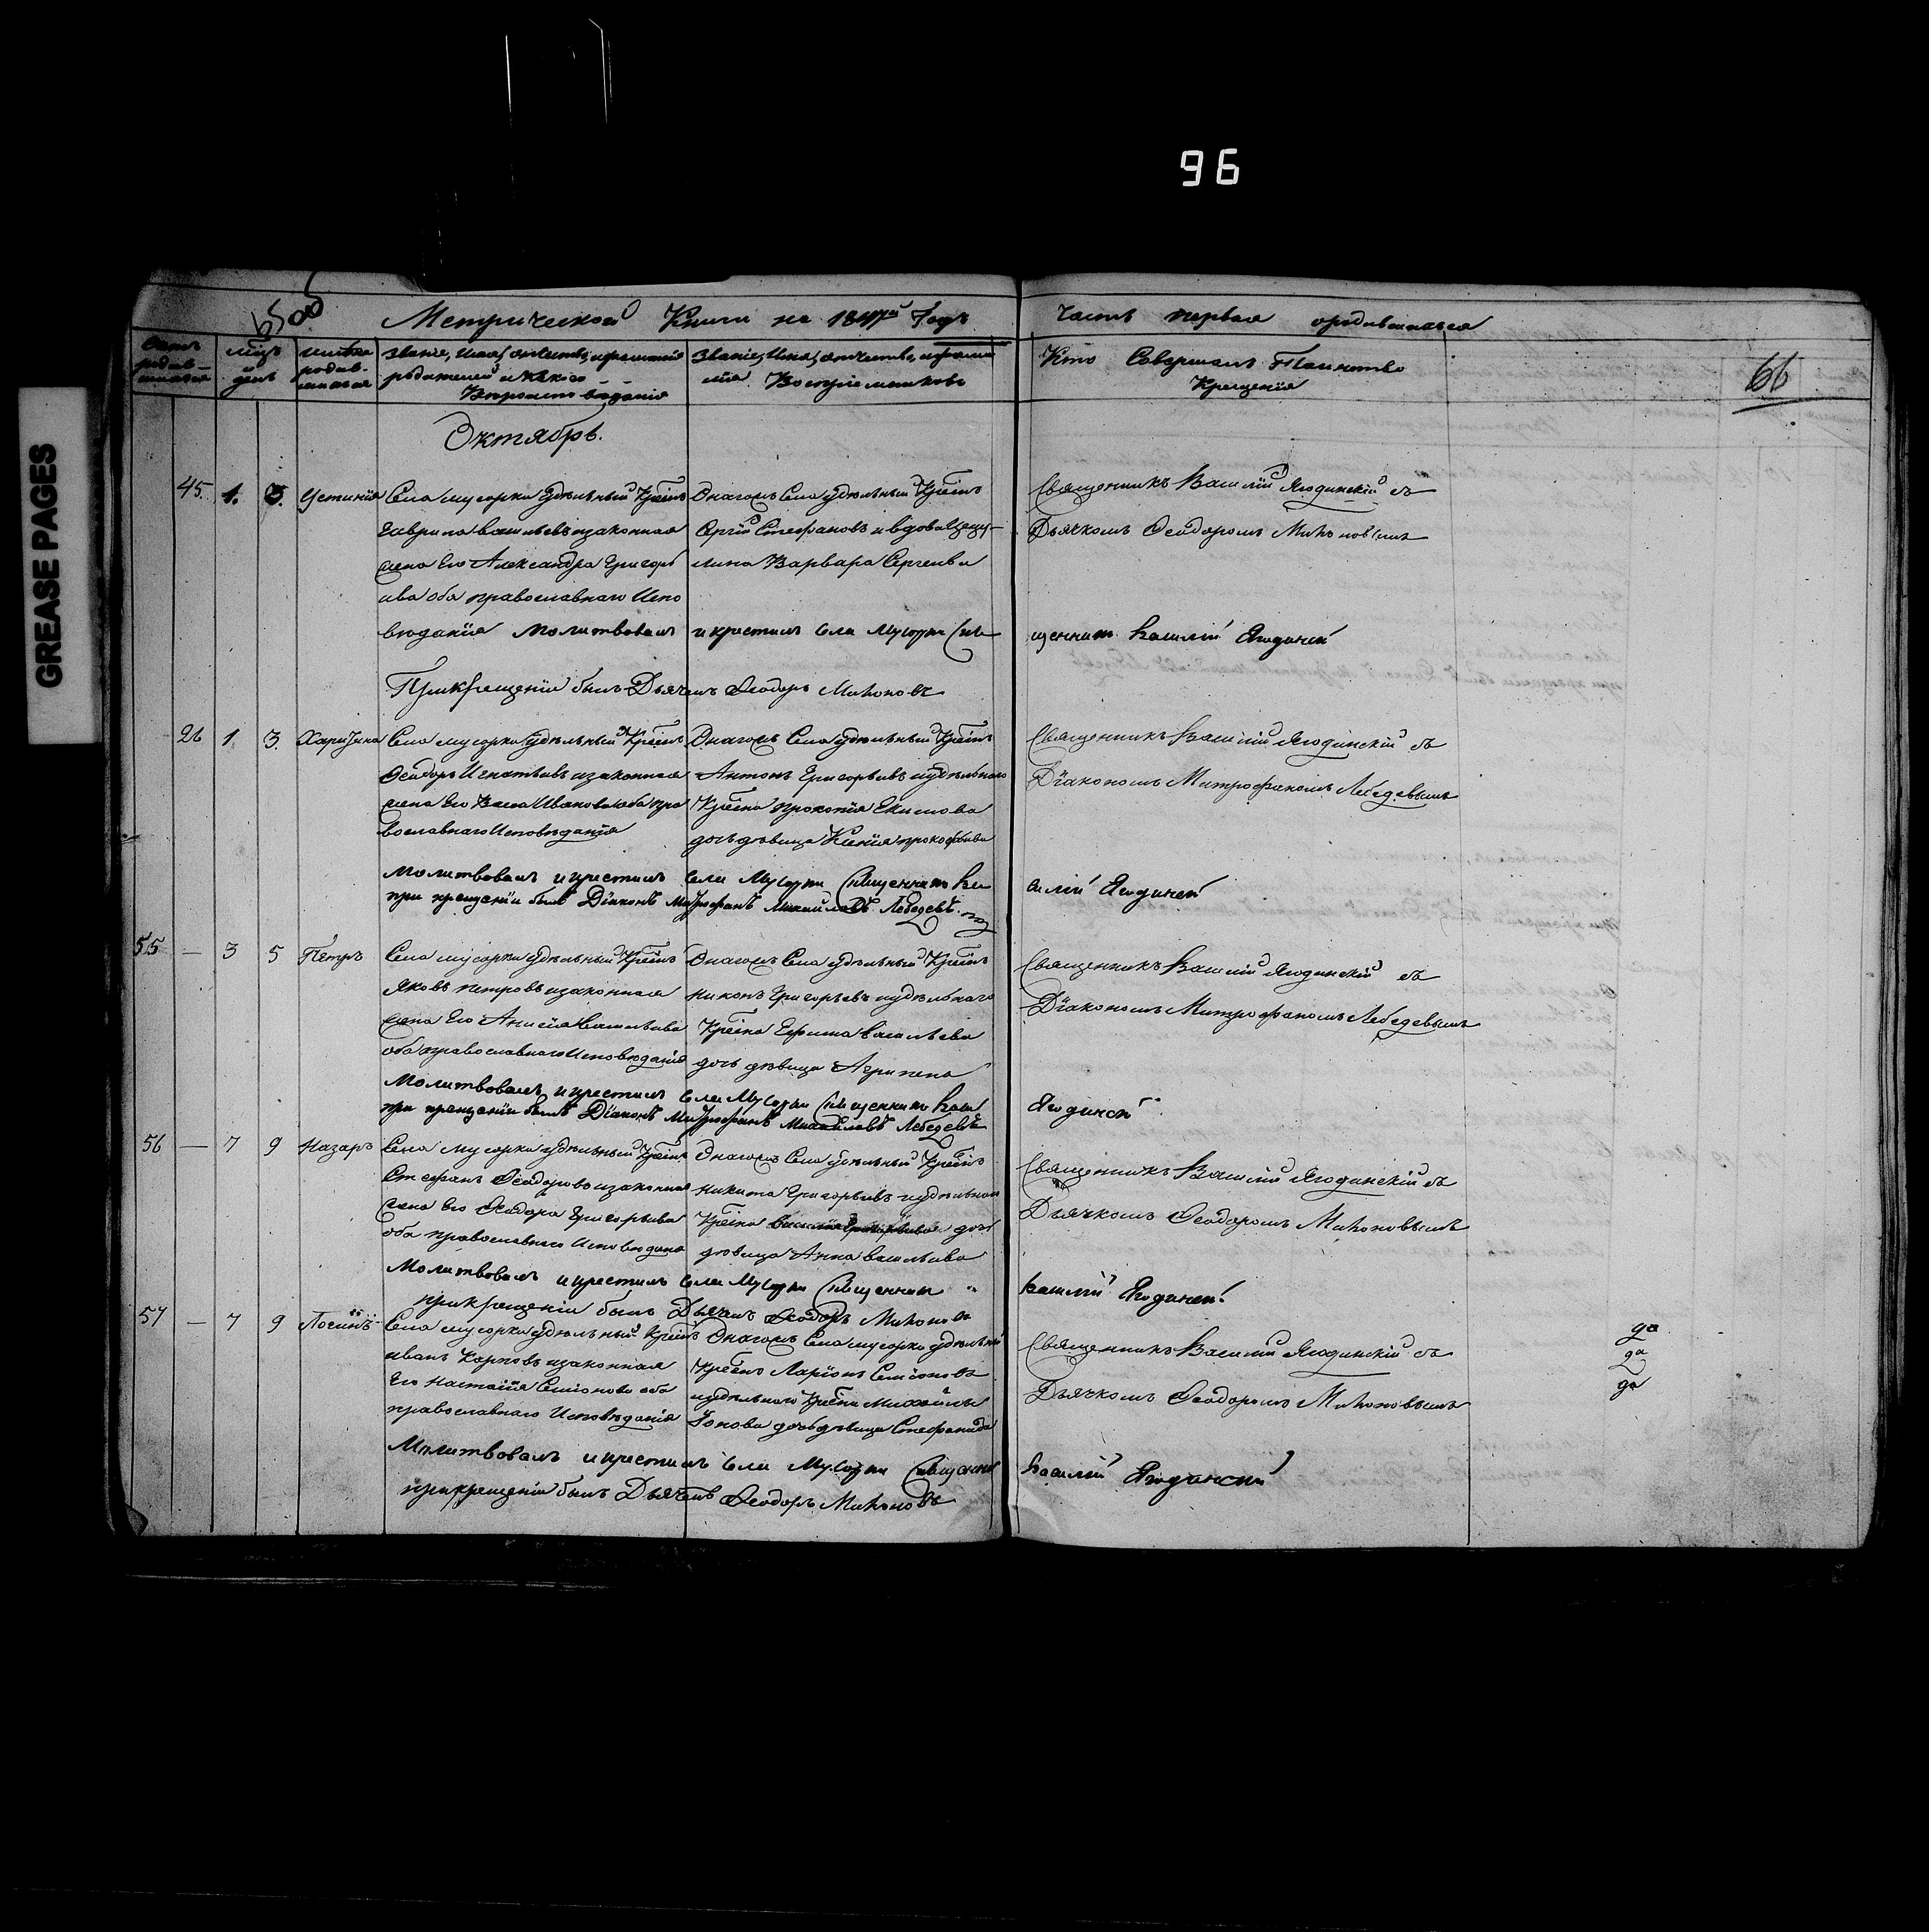 96
GREASE PAGES
65 об
Метрической Книги на 1847й Годъ
Часть первая ородившихся
66
Счетъ родив-шихся
мцъ день
имена родив-шихся
Званіе, имя, отчество, ифамилія родителей и какого Вѣроисповѣданія
Званіе, Имя, отчество, ифамилія Воспріемниковъ
Кто Совершалъ Таинство Крещенія
Октябрь.
45. 1. 3. Устинія
Села мусорки удѣльный Крестнъ
Гаврила васильевъ изаконная
жена Его Александра Григорь
ива оба православнаго Испо
вѣданія
Онагожъ Села удѣльный Крестнъ
Сергій Стефановъ и вдова
Варвара Сергеива
Священникъ Василій Ягодинскій съ
Дьячкомъ Ѳеодоромъ
Молитвовалъ и крестилъ села Мусорки Свя
щенникъ Василій Ягодинскій
При крещеніи былъ Дьячекъ Ѳеодоръ
26 1. 3. Харитина
Села мусорки удѣльный Крестнъ
Ѳеодоръ Игнатьивъ изаконная
жена Его Васса Иванова оба пра
вославнаго Исповѣданія
Онагожъ Села удѣльный Крестнъ
Антонъ Григорьивъ иудѣльнаго
Крестна прокопія Екимова
дочь дѣвица Ксенія прокофьива
Священникъ Василій Ягодинскій съ
Діакономъ Митрофаномъ Лебедевымъ
Молитвовалъ и крестилъ села Мусорки Священникъ Ва
силій Ягодинскій
при крещеніи былъ Діаконъ Митрофанъ Михайловъ Лебедевъ.
55 — 3 5 Петръ
Села мусорки удѣльный Крестнъ
Яковъ петровъ изаконная
жена Его Анисія Васильива
оба православнаго Исповѣданія
Онагожъ Села удѣльный Крестнъ
никонъ Григорьевъ иудѣльнаго
Крестна Ефима васильева
дочь дѣвица Агрипена
Священникъ Василій Ягодинскій съ
Діакономъ Митрофаномъ Лебедевымъ
Молитвовалъ и крестилъ села Мусорки Священникъ Васи
Ягодинскій
при крещеніи былъ Діаконъ Митрофанъ Михайловъ Лебедевъ
56 — 7 9 Назаръ
Села мусорки удѣльный Крестнъ
Стефанъ Ѳеодоровъ изаконная
жена Его Ѳеодора Григорьива
оба православнаго Исповѣдания
Онагожъ Села удѣльный Крестнъ
никита Григорьивъ иудѣльнаго
Крестна дочь
дѣвица Анна васильива
Священникъ Василій Ягодинскій съ
Дьячкомъ Ѳеодоромъ
Молитвовалъ и крестилъ села Мусорки Священникъ
Василій Ягодинскій
при крещеніи былъ Дьячекъ Ѳеодоръ
57 — 7 9 Логинъ
Села мусорки удѣльный Крестнъ
иванъ Карповъ изаконная
Его Настасія Семіонова оба
православнаго Исповѣданія
Онагожъ Села мусорки удѣльный
Крестнъ Ларіонъ Семіоновъ
иудѣльнаго Крестна Михайлы
Іонова дочь дѣвица Стефанида
Священникъ Василій Ягодинскій съ
Дьячкомъ Ѳеодоромъ
да
да
да
Молитвовалъ и крестилъ села Мусорки Священникъ
Василій Ягодинскій
при крещеніи былъ Дьячекъ Ѳеодоръ